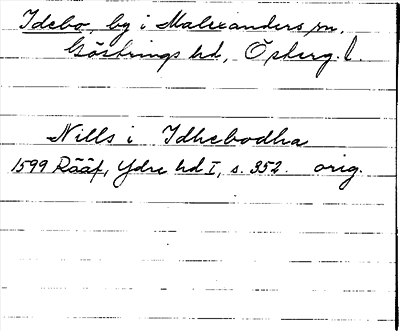 Idebo, by i Malexanders sn,
Göstrings hd, Österg. l.
Nills i Idhebodha
1599 Rääf, Ydre hd I, s. 352. orig.